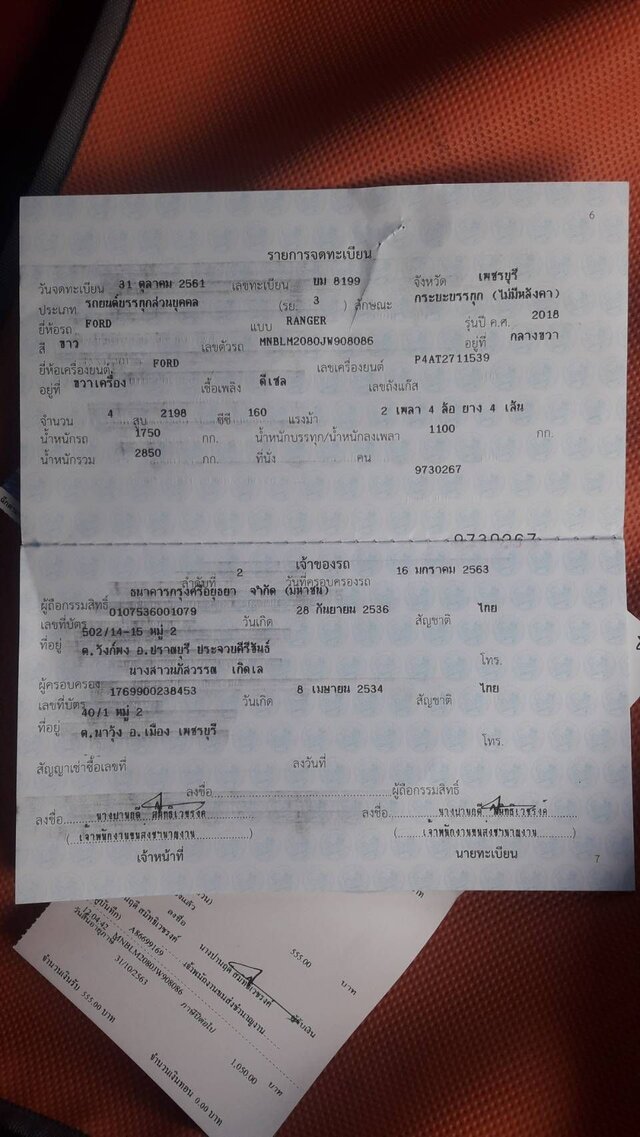 6
รายการจดทะเบียน
วันจดทะเบียน 31 ตุลาคม 2561 เลขทะเบียน ยม 8199 จังหวัด เพชรบุรี
ประเภท รถยนต์บรรทุกส่วนบุคคล (รย. 3 ) ลักษณะ กระบะบรรทุก (ไม่มีหลังคา)
ยี่ห้อรถ FORD แบบ RANGER รุ่นปี ค.ศ. 2018
สี ขาว เลขตัวรถ MNBLM2080JW908086 อยู่ที่ กลางขวา
ยี่ห้อเครื่องยนต์ FORD เลขเครื่องยนต์ P4AT2711539
อยู่ที่ ขวาเครื่อง เชื้อเพลิง ดีเซล เลขถังแก๊ส
จำนวน 4 สูบ 2198 ซีซี 160 แรงม้า 2 เพลา 4 ล้อ ยาง 4 เส้น
น้ำหนักรถ 1750 กก. น้ำหนักบรรทุก/น้ำหนักลงเพลา 1100 กก.
น้ำหนักรวม 2850 กก. ที่นั่ง คน
9730267
9730267
เจ้าของรถ
ลำดับที่ 2 วันที่ครอบครองรถ 16 มกราคม 2563
ผู้ถือกรรมสิทธิ์ ธนาคารกรุงศรีอยุธยา จำกัด (มหาชน)
เลขที่บัตร 0107536001079 วันเกิด 28 กันยายน 2536 สัญชาติ ไทย
ที่อยู่ 502/14-15 หมู่ 2
ต.วังก์พง อ.ปราณบุรี ประจวบคีรีขันธ์ โทร.
ผู้ครอบครอง นางสาวนภัสวรรณ เกิดเล
เลขที่บัตร 1769900238453 วันเกิด 8 เมษายน 2534 สัญชาติ ไทย
ที่อยู่ 40/1 หมู่ 2
ต.นาวุ้ง อ.เมือง เพชรบุรี โทร.
สัญญาเช่าซื้อเลขที่ ลงวันที่
ลงชื่อ ผู้ถือกรรมสิทธิ์
ลงชื่อ นางปานฤดี สมิทธิเวชรงค์ ลงชื่อ นางปานฤดี สมิทธิเวชรงค์
(เจ้าพนักงานขนส่งชำนาญงาน) (เจ้าพนักงานขนส่งชำนาญงาน)
เจ้าหน้าที่ นายทะเบียน
7
ลงชื่อ
นางปานฤดี สมิทธิเวชรงค์
555.00 บาท
A86699169 เจ้าพนักงานขนส่งชำนาญงาน
12:04:42 MNBLM2080JW908086
ผู้รับเงิน
วันสิ้นอายุภาษี 31/10/2563 ภาษีปีต่อไป 1,050.00 บาท
จำนวนเงินรับ 555.00 บาท จำนวนเงินทอน 0.00 บาท